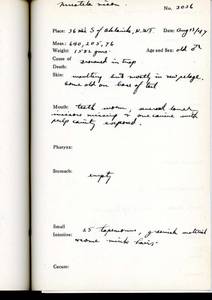 mustela vison
No. 2026
Place: 36 mi S of Aklavik, N.W.T. Date: Aug 13/47
Meas: 640, 205, 76
Weight: 1532 gms. Age and Sex: old ♂
Cause of
Death: drowned in trap
Skin: moulting but mostly in new pelage.
some old on base of tail
Mouth: teeth worn, several lower
incisors missing - one canine with
pulp cavity exposed.
Pharynx:
Stomach:
empty
Small
Intestine: 25 tapeworms, greenish material
some mink hairs.
Cecum: